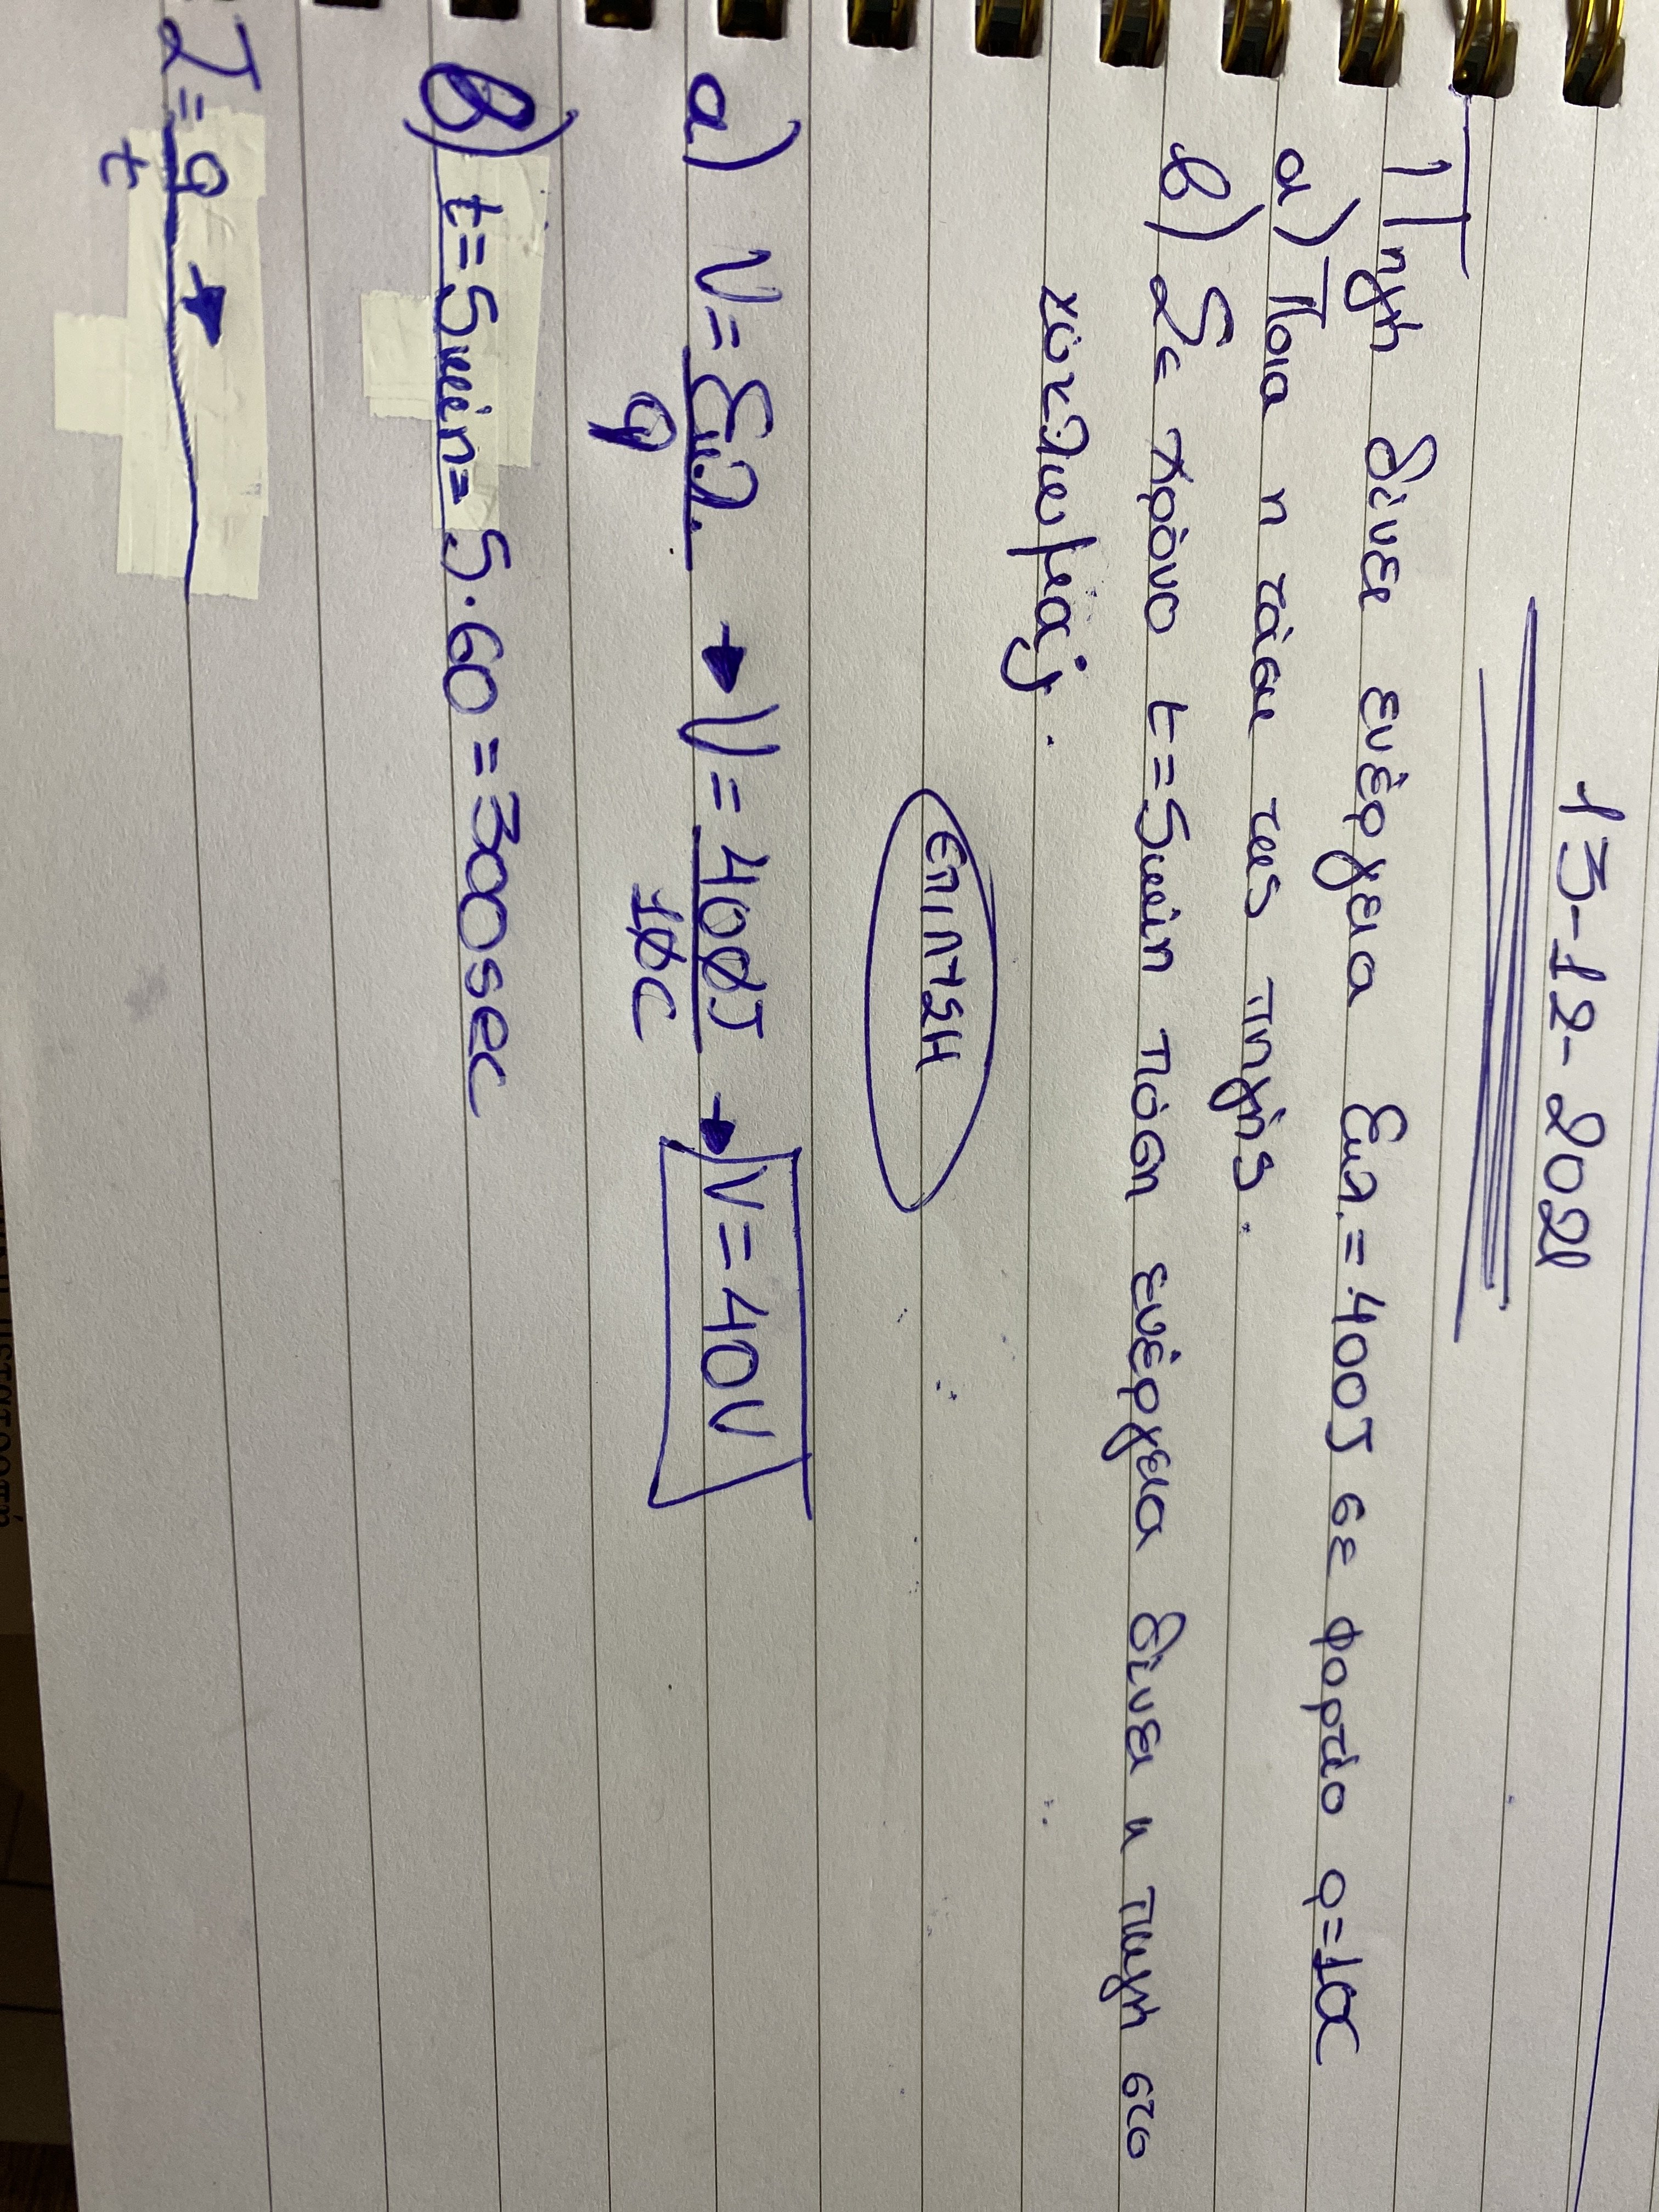 13-12-2021
Πηγή δίνει ενέργεια Εηλ.=400J σε φορτίο q=10C
α) Ποια η τάση της πηγής.
β) Σε χρόνο t=5min πόση ενέργεια δίνει η πηγή στο
κύκλωμα;.
ΕΠΙΛΥΣΗ
α) V=Εηλ./q → V=400J/10C → V=40V
β) t=5min=5·60=300sec
I=q/t →